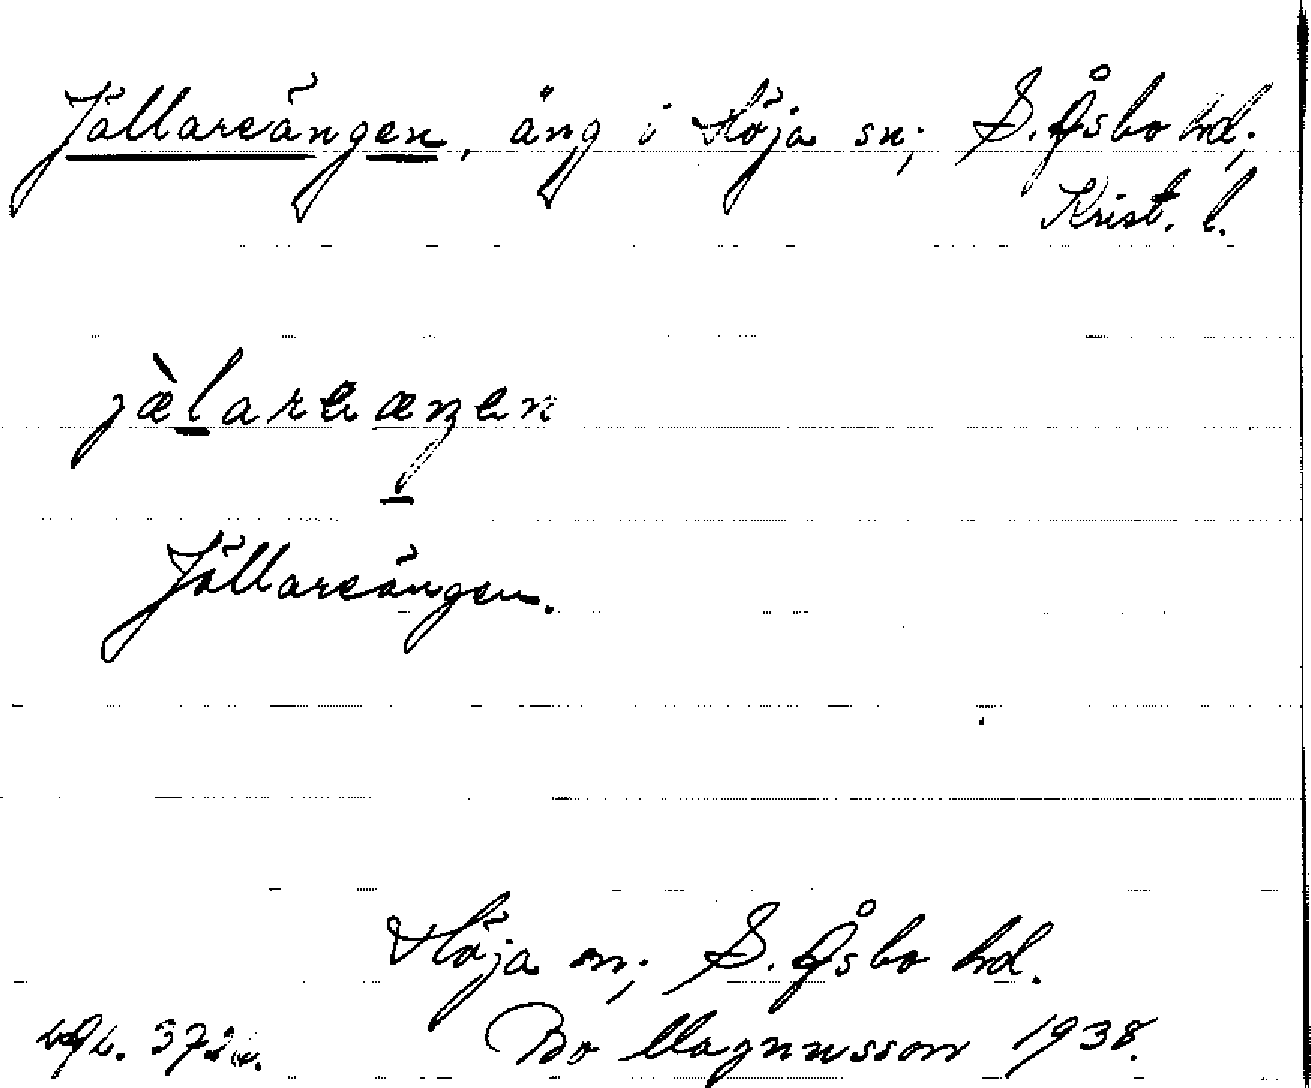 Jällareängen, äng i Höja sn; S. Åsbo hd;
Krist. l.
jæ̀lareæŋen
Jällareängen.
Höja sn; S. Åsbo hd.
Bo Magnusson 1938.